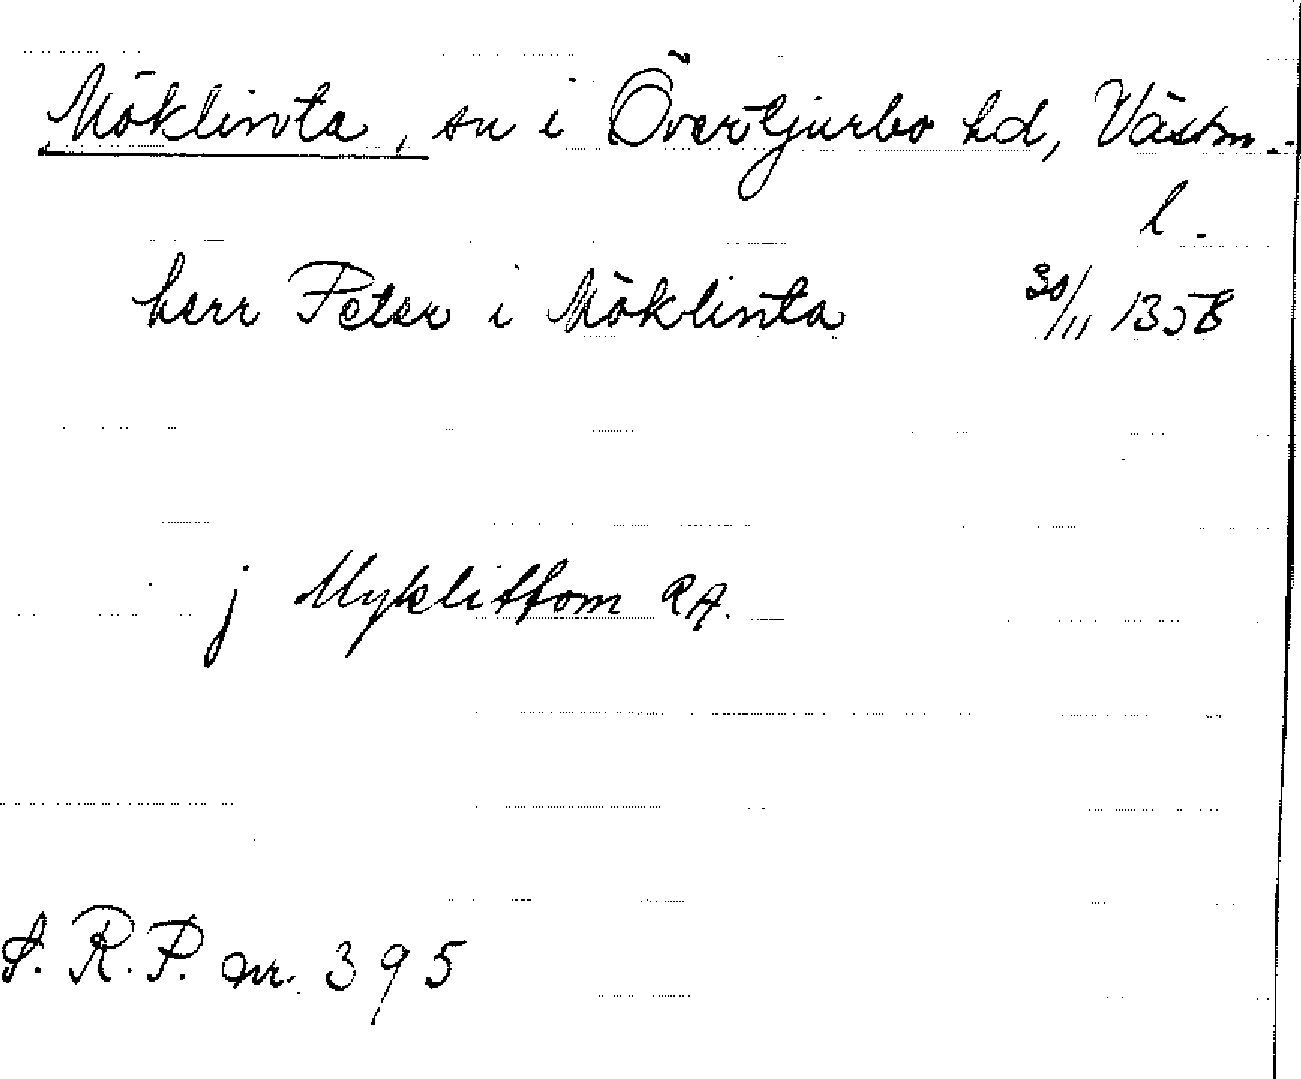 Möklinta, sn i Övertjurbo hd, Västm.-
l.
herr Peter i Möklinta 30/11 1358
j Myklittom RA.
S. R. P. nr. 395